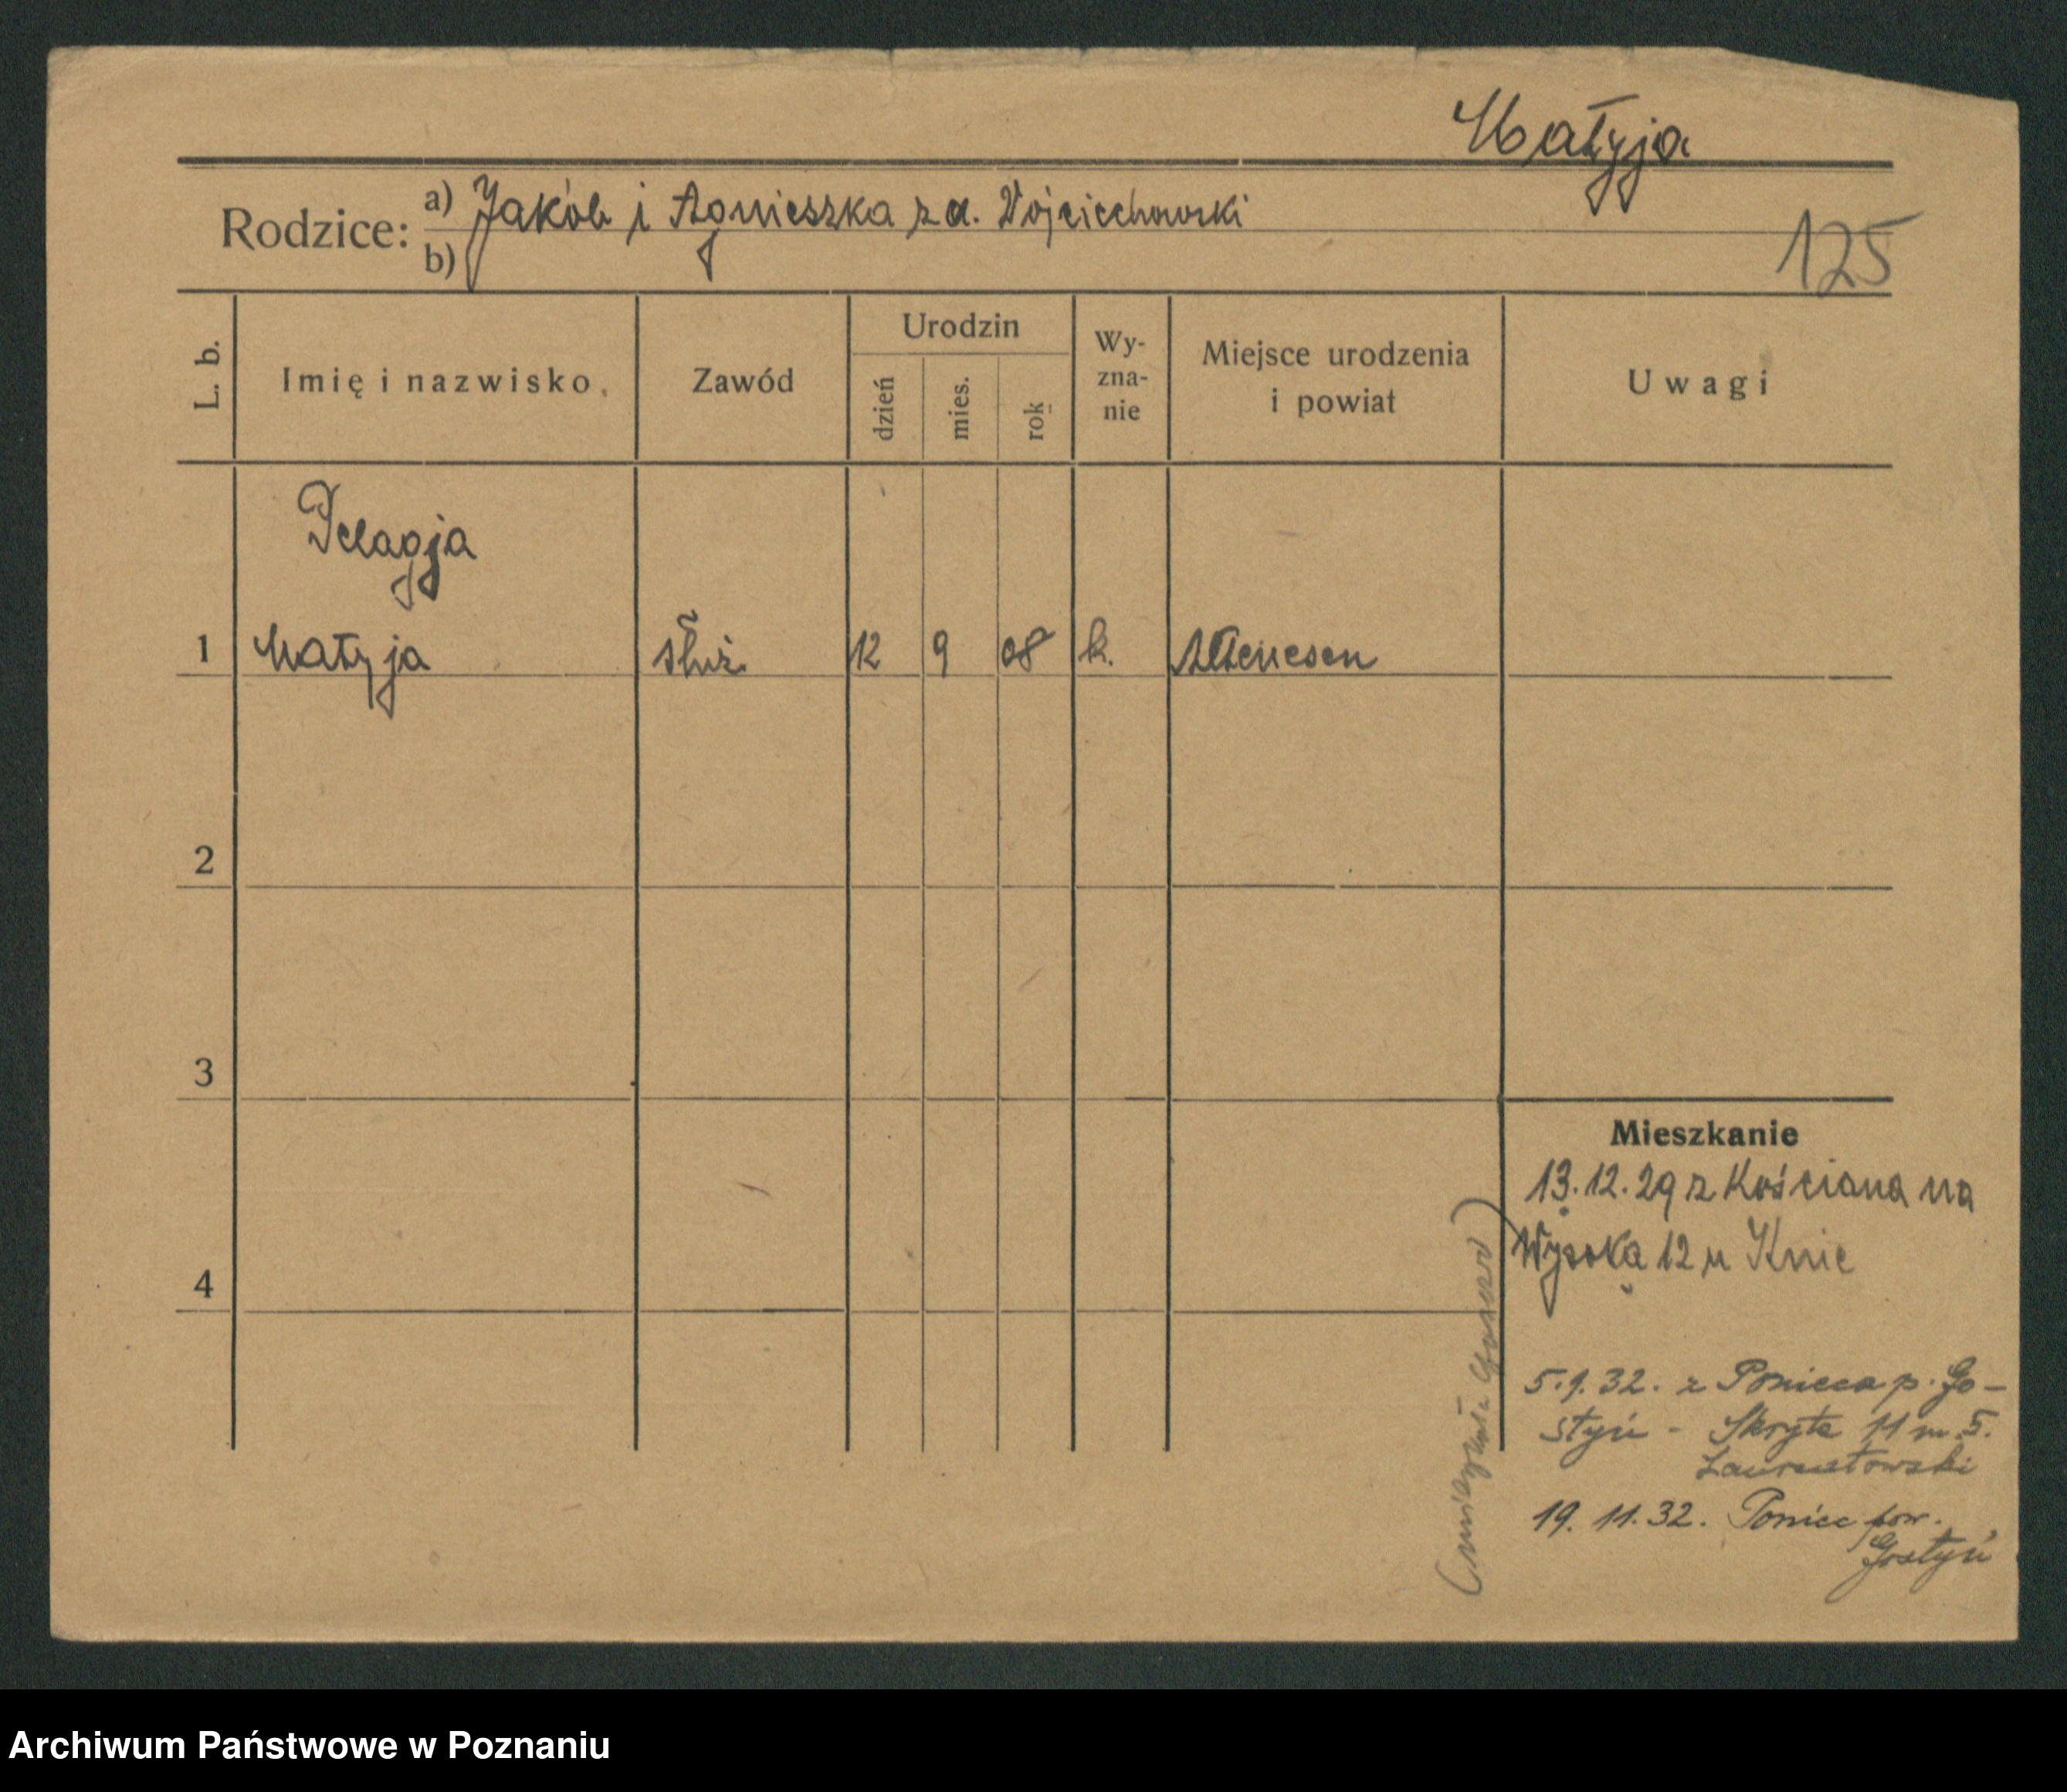 Małyja
Rodzice: a) Jakób i Agnieszka z d. Wojciechowski
b)
125
L. b.
Imię i nazwisko.
Zawód
Urodzin
dzień
mies.
rok
Wy-
zna-
nie
Miejsce urodzenia
i powiat
Uwagi
Pelagja
1 Małyja służ. 12 9 08 k. Altenesen
2
3
4
Mieszkanie
13.12.29 z Kościana na
Wysoka 12 u
5.9.32. z Ponieca p. Go-
styń - Skryta 11 m. 5.
19.11.32. Poniec pow.
Gostyń
Archiwum Państwowe w Poznaniu